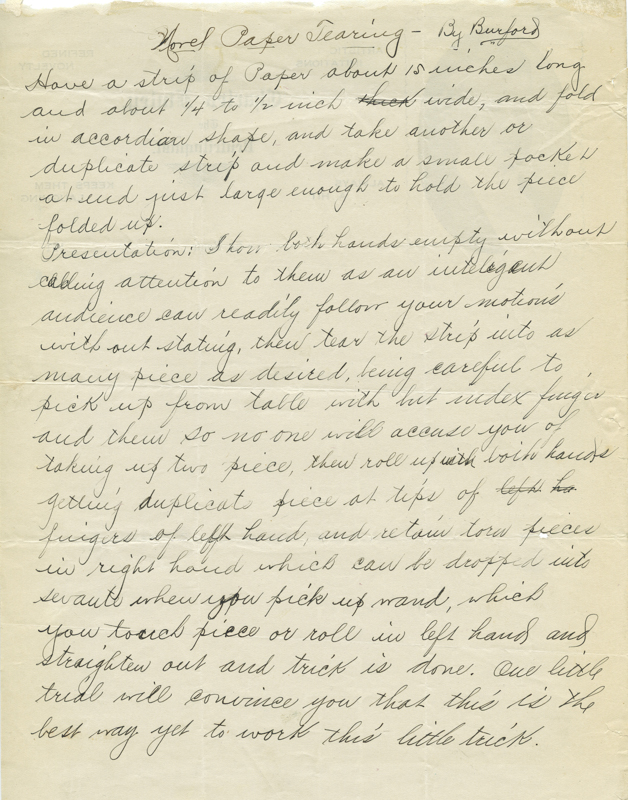 Novel Paper Tearing - By Burford
Have a strip of Paper about 15 inches long
and about 1/4 to 1/2 inch thick wide, and fold
in accordian shape, and take another or
duplicate strip and make a small pocket
at end just large enough to hold the piece
folded up.
Presentation: Show both hands empty without
calling attention to them as an inteligent
audience can readily follow your motions
with out stating, then tear the strip into as
many piece as desired, being careful to
pick up from table with but index finger
and them so no one will accuse you of
taking up two piece, then roll up with both hands
getting duplicate piece at tips of left ha
fingers of left hand, and retain torn pieces
in right hand which can be dropped into
sevante when you pick up wand, which
you touch piece or roll in left hand and
straighten out and trick is done. One little
trial will convince you that this is the
best way yet to work this little trick.